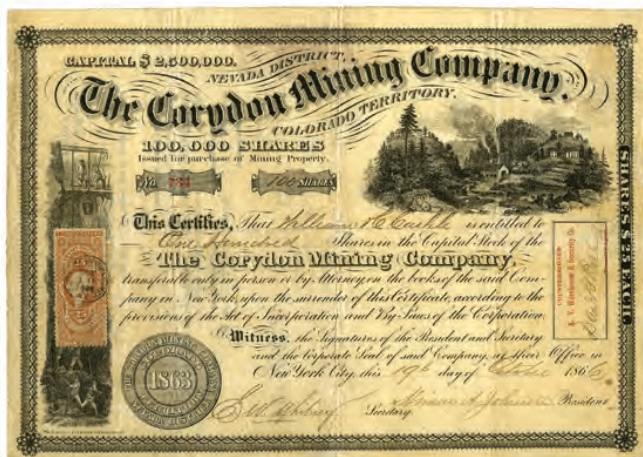 CAPITAL $2,500,000.
NEVADA DISTRICT,
The Corydon Mining Company.
COLORADO TERRITORY.
100,000 SHARES
Issued for purchase of Mining Property.
No 734
100 SHARES
SHARES $25 EACH.
This Certifies, That William C is entitled to
One Hundred Shares in the Capital Stock of the
The Corydon Mining Company,
transferable only in person or by Attorney, on the books of the said Com-
pany in New York upon the surrender of this Certificate, according to the
provisions of the Act of Incorporation and By-Laws of the Corporation.
Witness, the Signatures of the President and Secretary
and the Corporate Seal of said Company, at their Office in
New York City, this 19th day of October 1866
Secretary.
President
COUNTERSIGNED
N. Y. Warehouse & Security Co.
THE CORYDON MINING COMPANY
1863